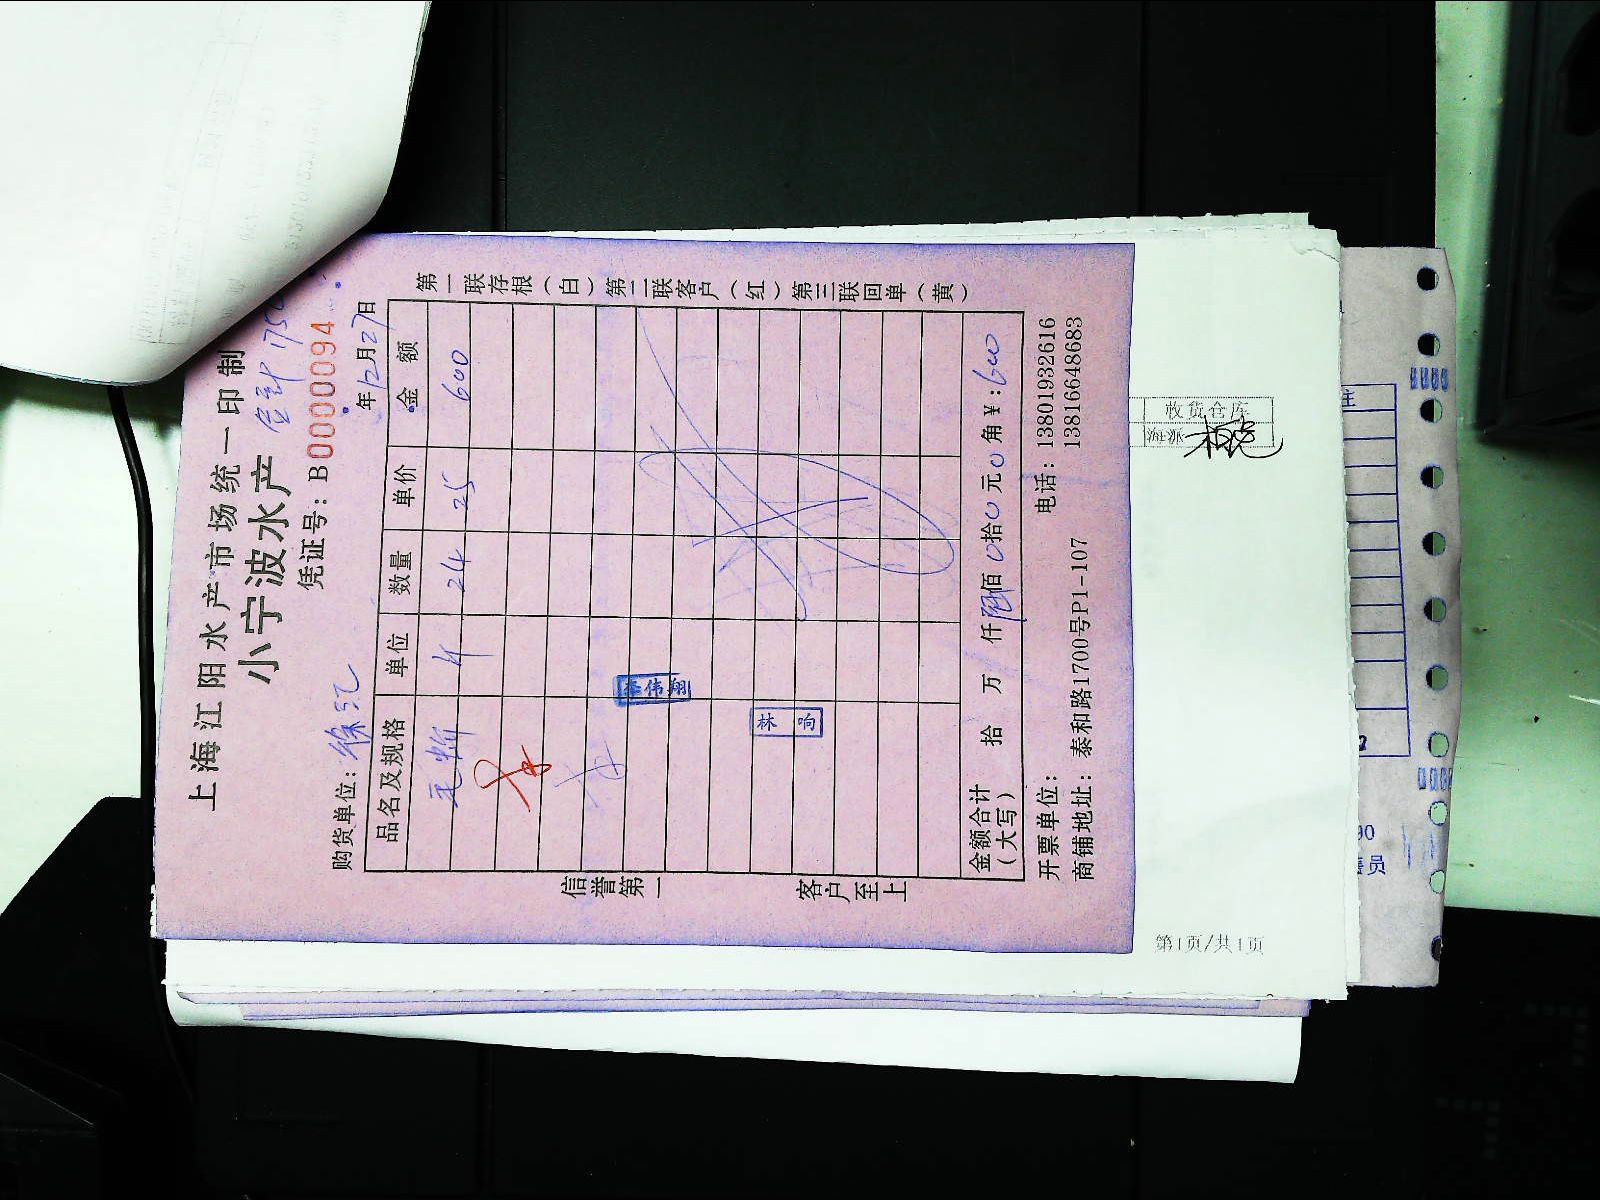 上海江阳水产市场统一印制
小宁波水产
合计 175
凭证号：B 0000094
购货单位：徐汇
年12月27日
品名及规格 单位 数量 单价 金额
毛蚶 斤 24 25 600
李伟翔
林响
金额合计（大写） 拾 万 仟 陆佰 0拾 0元 0角 ¥：600
开票单位：
电话：13801932616
13816648683
商铺地址：泰和路1700号P1-107
信誉第一 客户至上
第一联存根（白）第二联客户（红）第三联回单（黄）
收货仓库
第1页/共1页
90